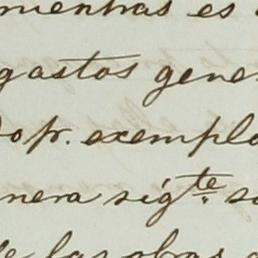 mientras es
gastos gene
por. exemplo
nera sigte. s
de las obras